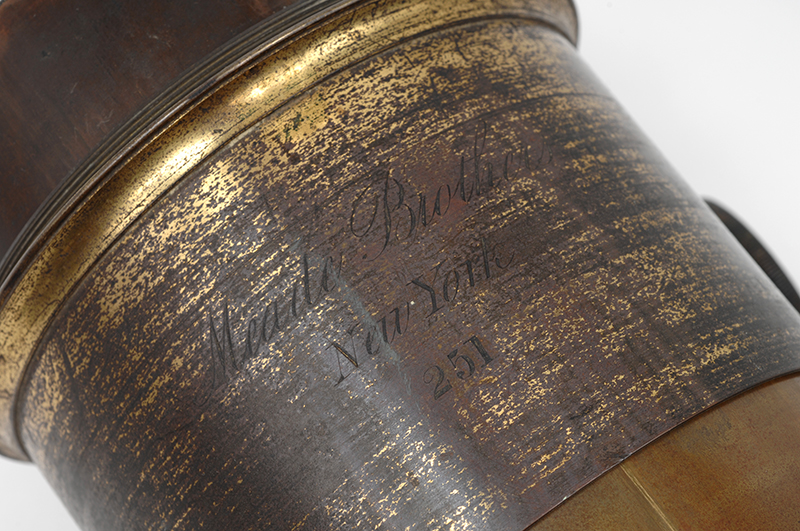 Meade Brothers
New York
251